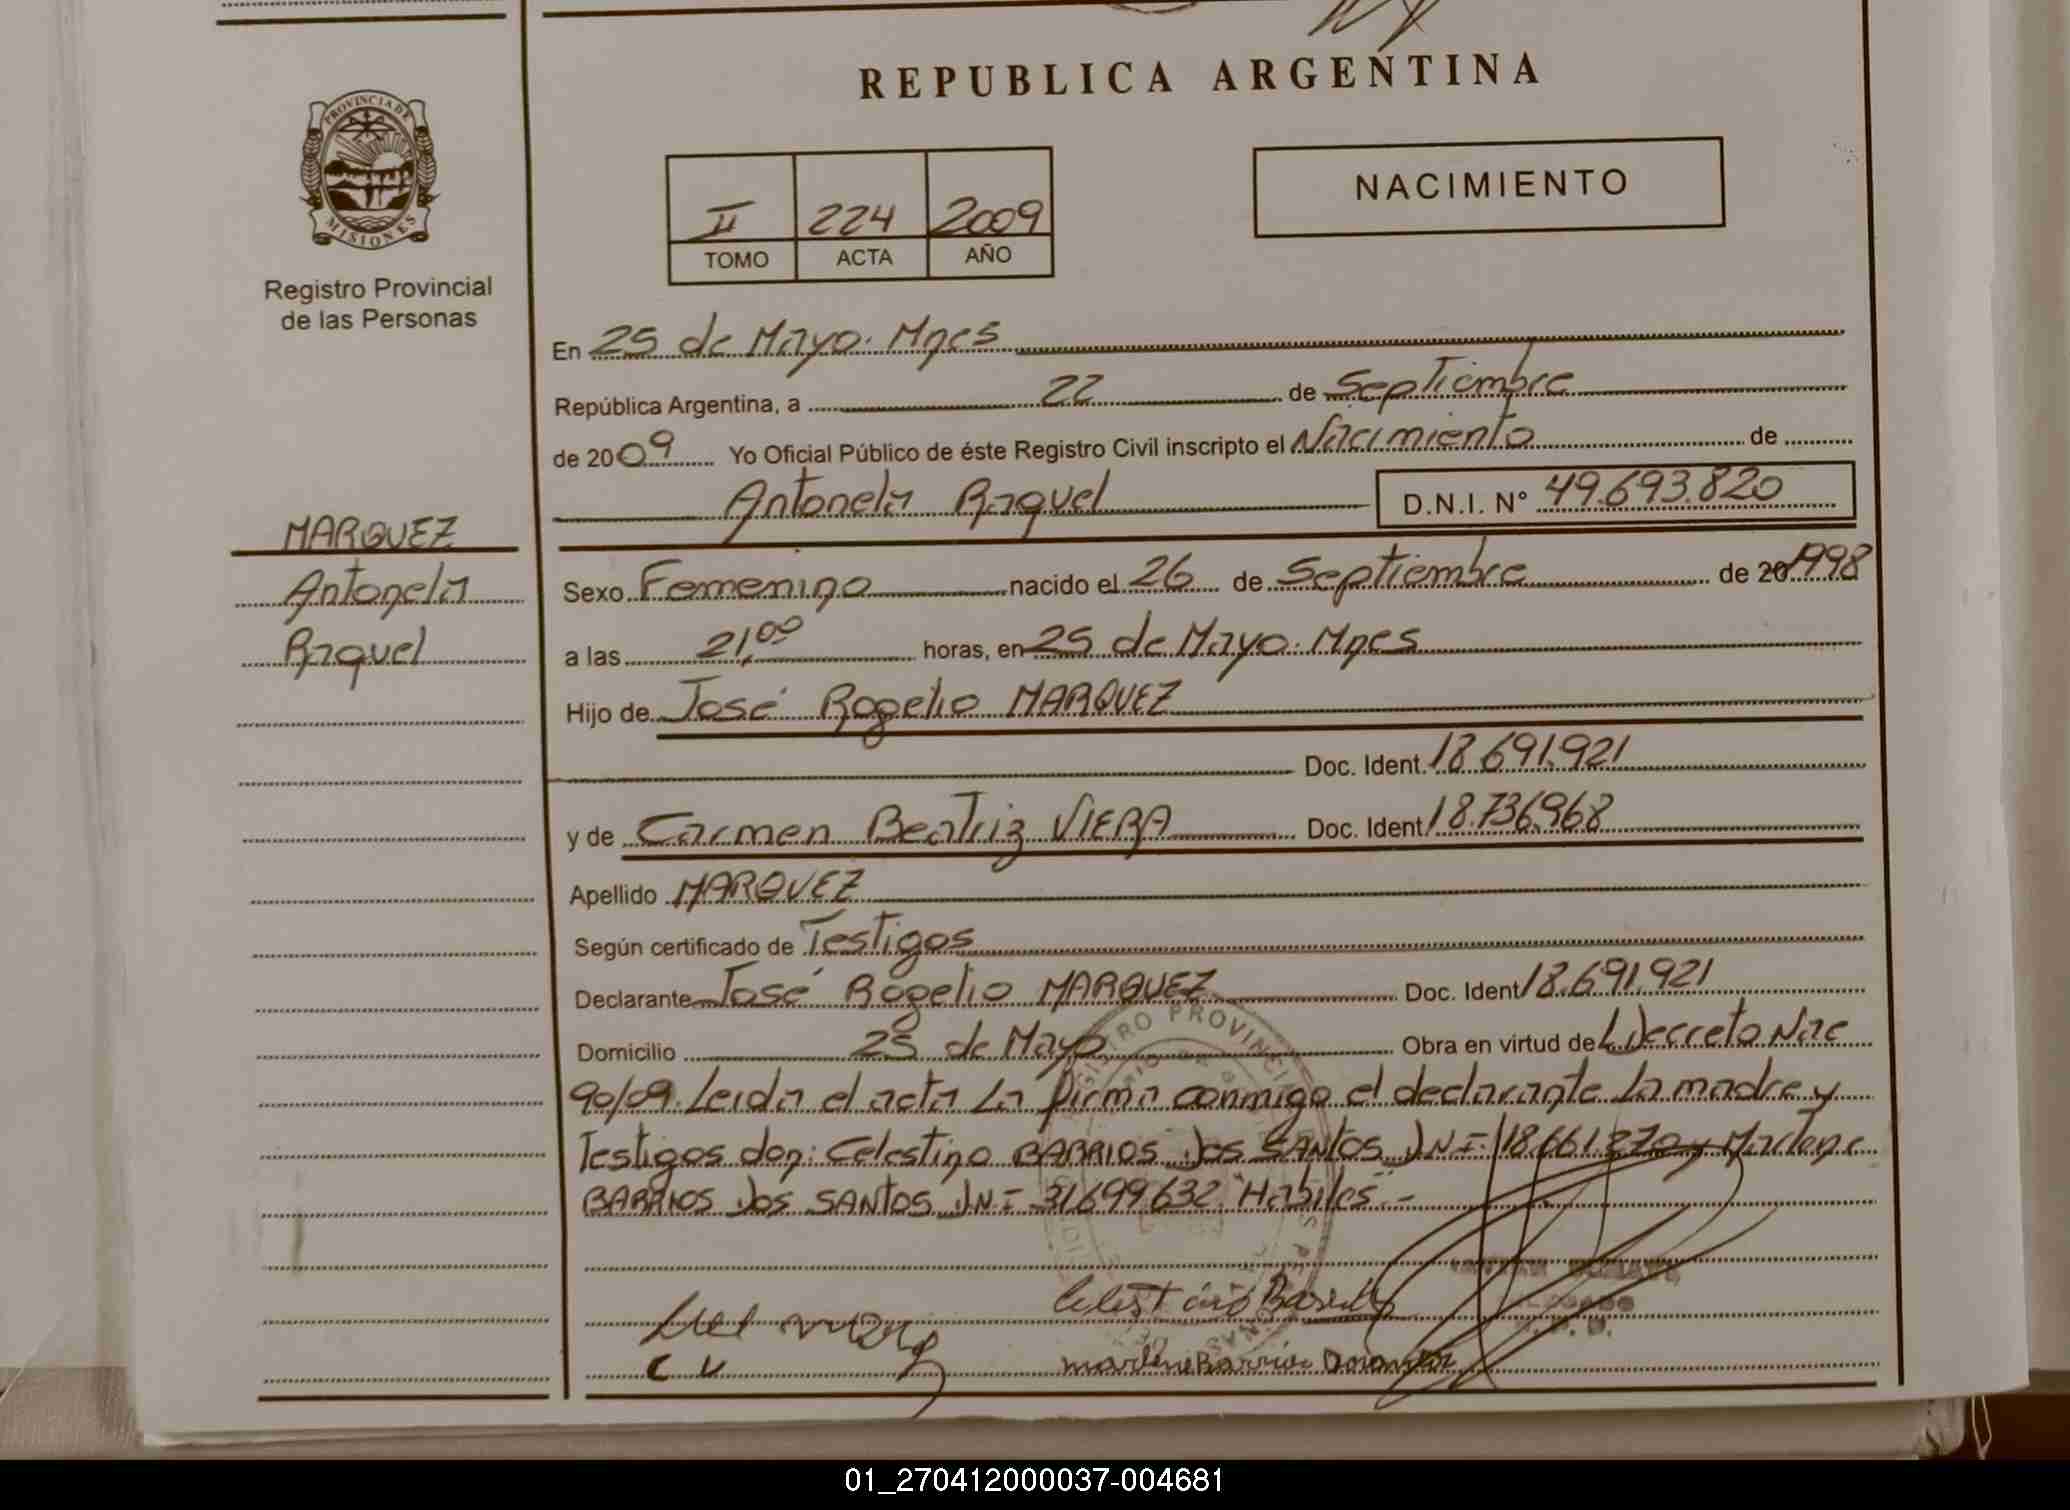 REPUBLICA ARGENTINA
PROVINCIA DE
MISIONES
Registro Provincial
de las Personas
II 224 2009
TOMO ACTA AÑO
NACIMIENTO
MARQUEZ
Antonela
Raquel
En 25 de Mayo. Mnes
República Argentina, a 22 de Septiembre
de 2009 Yo Oficial Público de éste Registro Civil inscripto el Nacimiento de
Antonela Raquel D.N.I. N° 49.693.820
Sexo Femenino nacido el 26 de Septiembre de 20 1998
a las 21,00 horas, en 25 de Mayo. Mnes
Hijo de José Rogelio MARQUEZ
Doc. Ident. 18.691.921
y de Carmen Beatriz VIERA Doc. Ident 18.736.968
Apellido MARQUEZ
Según certificado de Testigos
Declarante José Rogelio MARQUEZ Doc. Ident 18.691.921
Domicilio 25 de Mayo Obra en virtud de Decreto Nac
90/09. Leida el acta La firma conmigo el declarante la madre y
Testigos don: Celestino BARRIOS Dos SANTOS DNI 18.661.270 y Marlene
BARRIOS Dos SANTOS DNI 31.699.632 "Habiles".-
C V
marlene Barrios
01_270412000037-004681